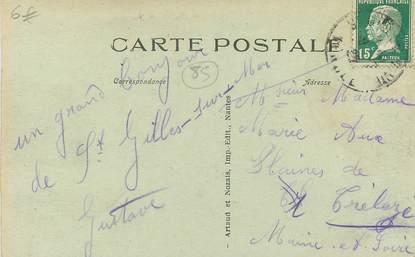 6f
CARTE POSTALE
Correspondance
Adresse
85
un grand bonjour
de St Gilles-sur-Mer
Gustave
Artaud et Nozais, Imp.-Edit., Nantes
Msieur Madame
Marie Aux
Plaines de
Trélazé
Maine-et-Loire
RÉPUBLIQUE FRANÇAISE
15c
PASTEUR